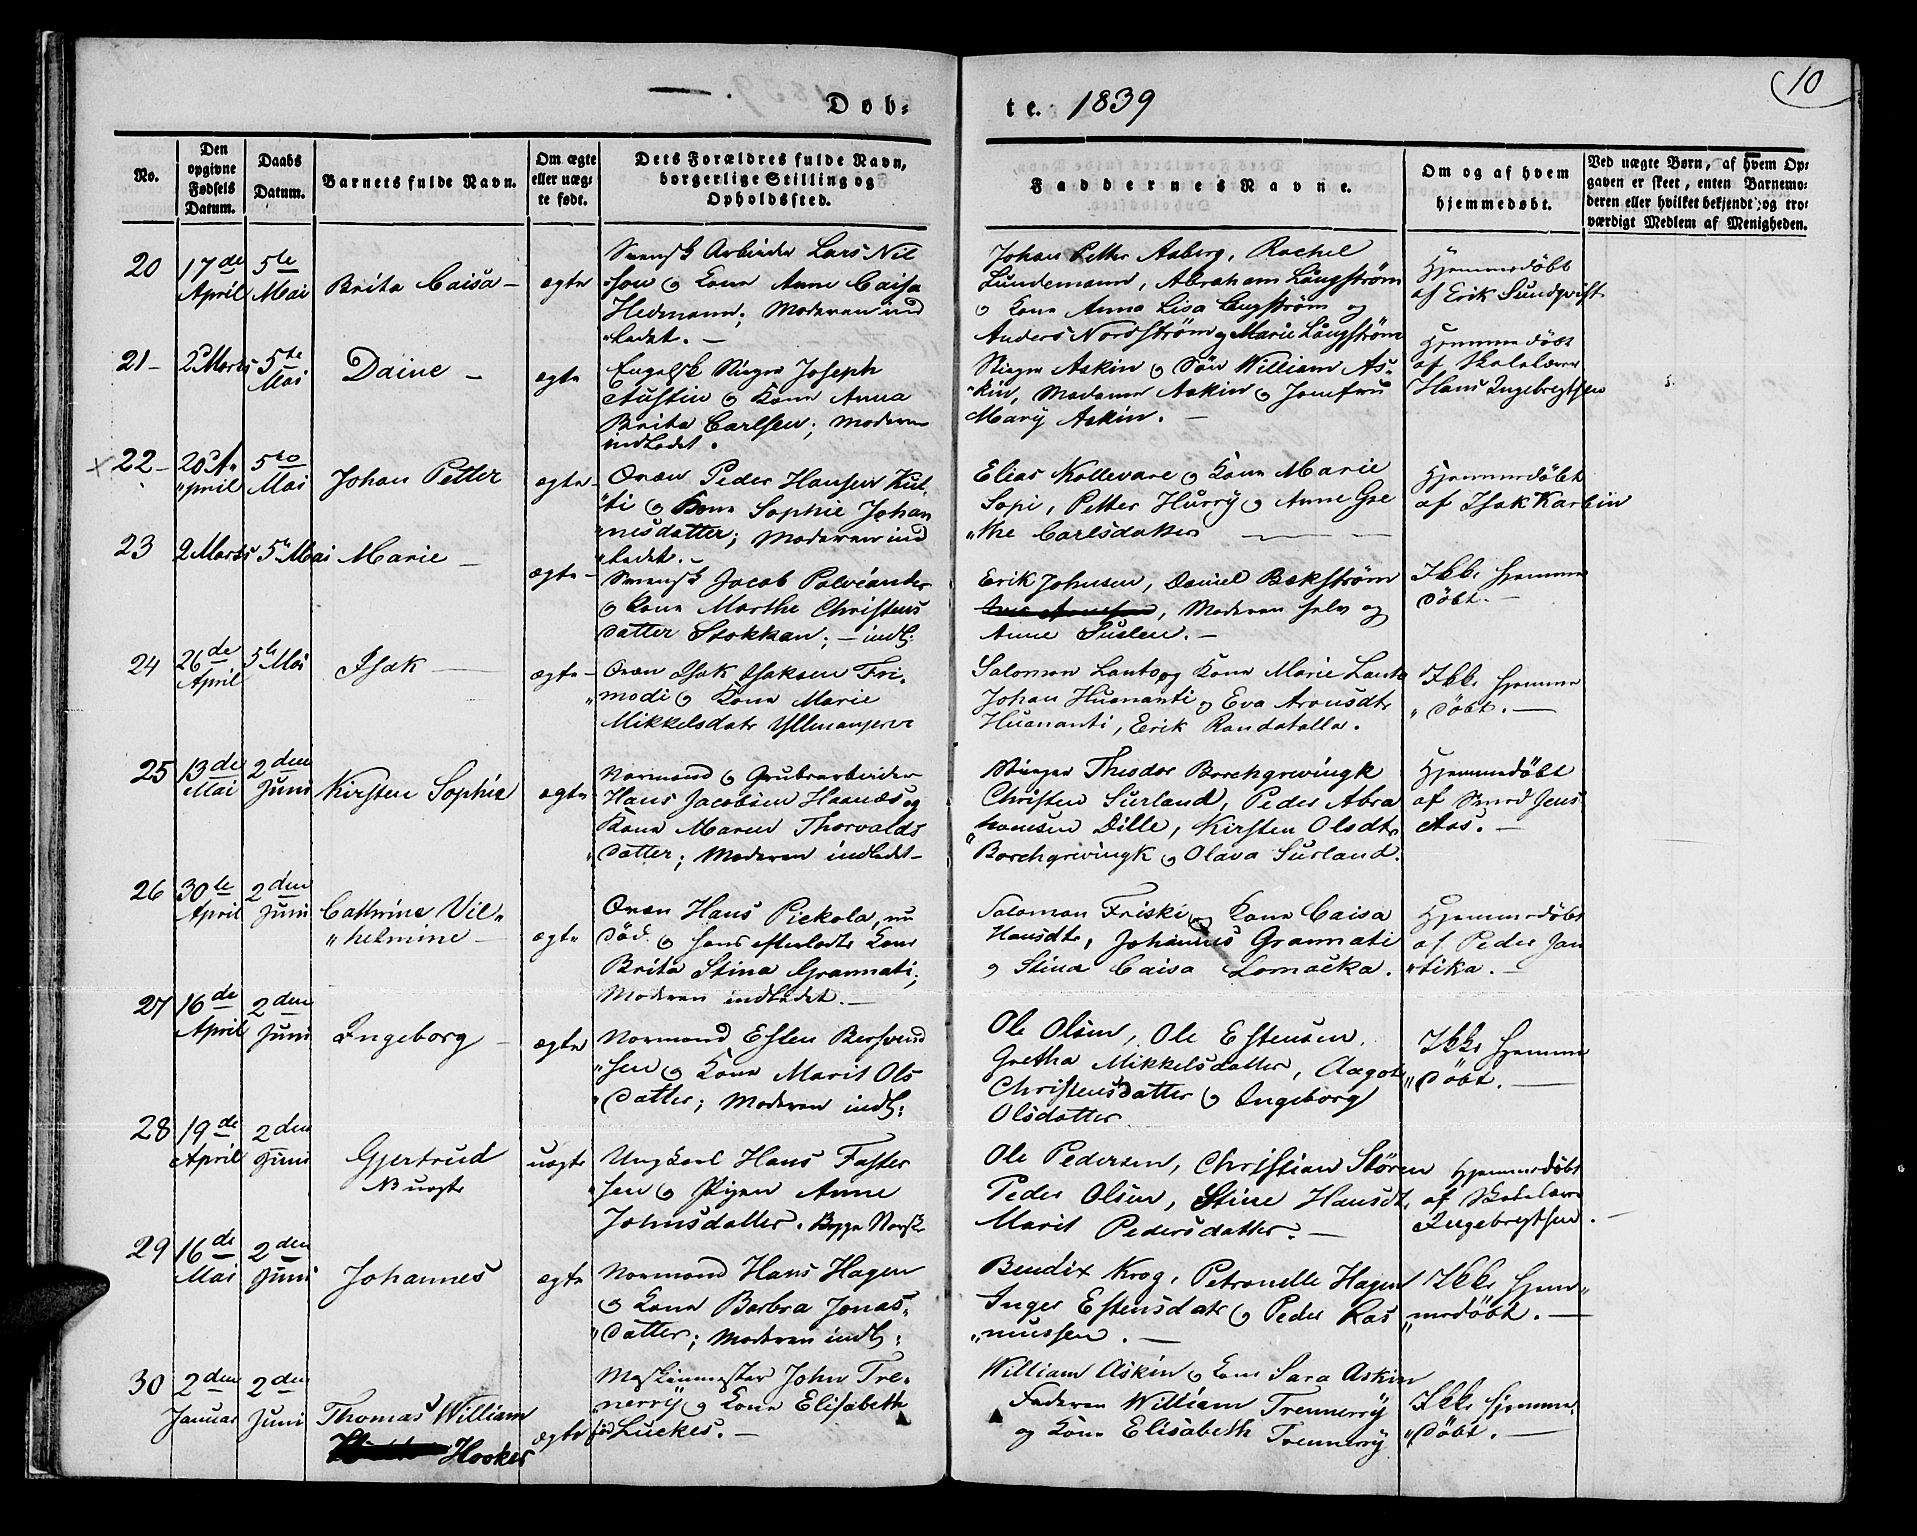 Døb-
te. 1839
10
No.
Den opgivne Fødsels Datum.
Daabs Datum.
Barnets fulde Navn.
Om ægte eller uæg-te født.
Dets Forældres fulde Navn, borgerlige Stilling og Opholdssted.
Faddernes Navne.
Om og af hvem hjemmedøbt.
Ved uægte Børn, af hvem Op-gaven er skeet, enten Barnemo-deren eller hvilket bekjendt, og tro-værdigt Medlem af Menigheden.
20
17de April
5te Mai
Brita Caisa –
ægte
Svensk Arbeider Lars Nil
"son og Kone Anne Caisa
Hedmann; Moderen ind
"ledet. –
Johan Petter Aaberg, Rachel
Lundemann, Abraham Långström
og Kone Anna Lisa Langström og
Anders Nordström og Marie Långström
Hjemmedöbt
af Erik Sundqvist
21 –
2 Marts
5te Mai
Daine –
ægte
Engelsk Stiger Joseph
Austin og Kone Anna
Brita Carlsen; Moderen
indledet.
Stiger Askin og Sön William As-
"kin, Madame Askin og Jomfru
Mary Askin. –
Hjemmedöbt
af Skolelærer
Hans Ingebrigtsen
22 –
20 A-
"pril
5te Mai
Johan Petter
ægte –
Qvæn Peder Hansen Kut-
"ti og Kone Sophie Johan
"nesdatter; Moderen ind
"ledet. –
Elias Kollevare og Kone Marie
Sopi, Petter Hurry og Anne Gre
"the Carlsdatter
Hjemmedöbt
af Isak Karbin
23
2 Marts
5te Mai
Marie –
ægte –
Svensk Jacob Palviander
og Kone Marthe Christens
datter Stokkan; – indl:
Erik Johnsen, Daniel Bækström
, Moderen selv og
Anne Suslen. –
Ikke hjemme
döbt. –
24
26de April
5te Mai
Isak –
ægte –
Qvæn Isak Isaksen Fri-
"modi og Kone Marie
Mikkelsdatr
Salomon Lanto og Kone Marie Lanto
Johan Huananti og Eva Aronsdtr
Huananti, Erik Randatalla.
Ikke hjemme
"döbt. –
25
13de Mai
2den Juni
Kirsten Sophie
ægte
Normand og Grubearbeider
Hans Jacobsen Haanæs og
Kone Maren Thorvalds
"datter; Moderen indledet –
Stiger Theodor Borchgrevingk
Christen Surland, Peder Abra
"hamsen Dille, Kirsten Olsdtr
Borchgrevingk og Olava Surland.
Hjemmedöbt
af Smed Jens
Aas. –
26
30te April
2den Juni
Cathrine Vil-
"helmine –
ægte
Qvæn Hans Piekola, nu
död og hans efterladte Kone
Brita Stina Grannati;
Moderen indledet. –
Salomon Friski og Kone Caisa
Hansdtr, Johannes Grannati
og Stina Caisa Lomacka.
Hjemmedöbt
af Peder Jan
"tika. –
27
16de April
2den Juni
Ingeborg –
ægte
Normand Esten Bersvend
"sen og Kone Marit Ols
"datter; Moderen indl:
Ole Olsen, Ole Estensen,
Gretha Mikkelsdatter, Aagot
Christensdatter og Ingeborg
Olsdatter
Ikke hjemme
"döbt. –
28
19de April
2den Juni
Gjertrud
NB uægte
uægte
Ungkarl Hans Faster
"sen og Pigen Anne
Johnsdatter. Begge Norske
Ole Pedersen, Christian Stören
Peder Olsen, Stine Hansdt,
Marit Pedersdatter. –
Hjemmedöbt
af Skolelærer
Ingebrigtsen. –
29
16de Mai
2den Juni
Johannes
ægte
Normand Hans Hagen
og Kone Barbra Jonas-
"datter; Moderen indl:
Bendix Krog, Petronelle Hagen
Inger Estensdatr og Peder Ras
"mussen. –
Ikke hjem-
"medöbt. –
30
2den Januar
2den Juni
Thomas William
Hooker
ægte
Maskinmester John Tre-
nerry og Kone Elisabeth
föd Luckes. –
William Askin og Kone Sara Askin
Faderen William Trennerry
og Kone Elisabeth Trennerry
Ikke hjemme-
"döbt. –